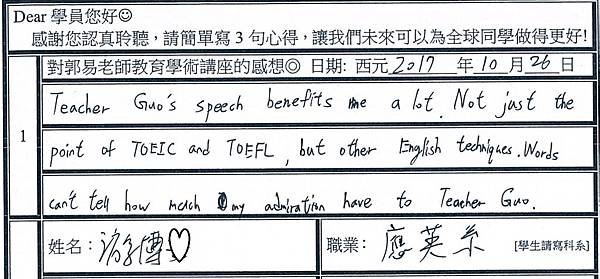 Dear 學員您好☺
感謝您認真聆聽，請簡單寫 3 句心得，讓我們未來可以為全球同學做得更好!
對郭易老師教育學術講座的感想◎ 日期: 西元 2017 年 10 月 26 日
1
Teacher Guo's speech benefits me a lot. Not just the
point of TOEIC and TOEFL, but other English techniques. Words
can't tell how much my admiration have to Teacher Guo.
姓名： ♡
職業： 應英系 [學生請寫科系]